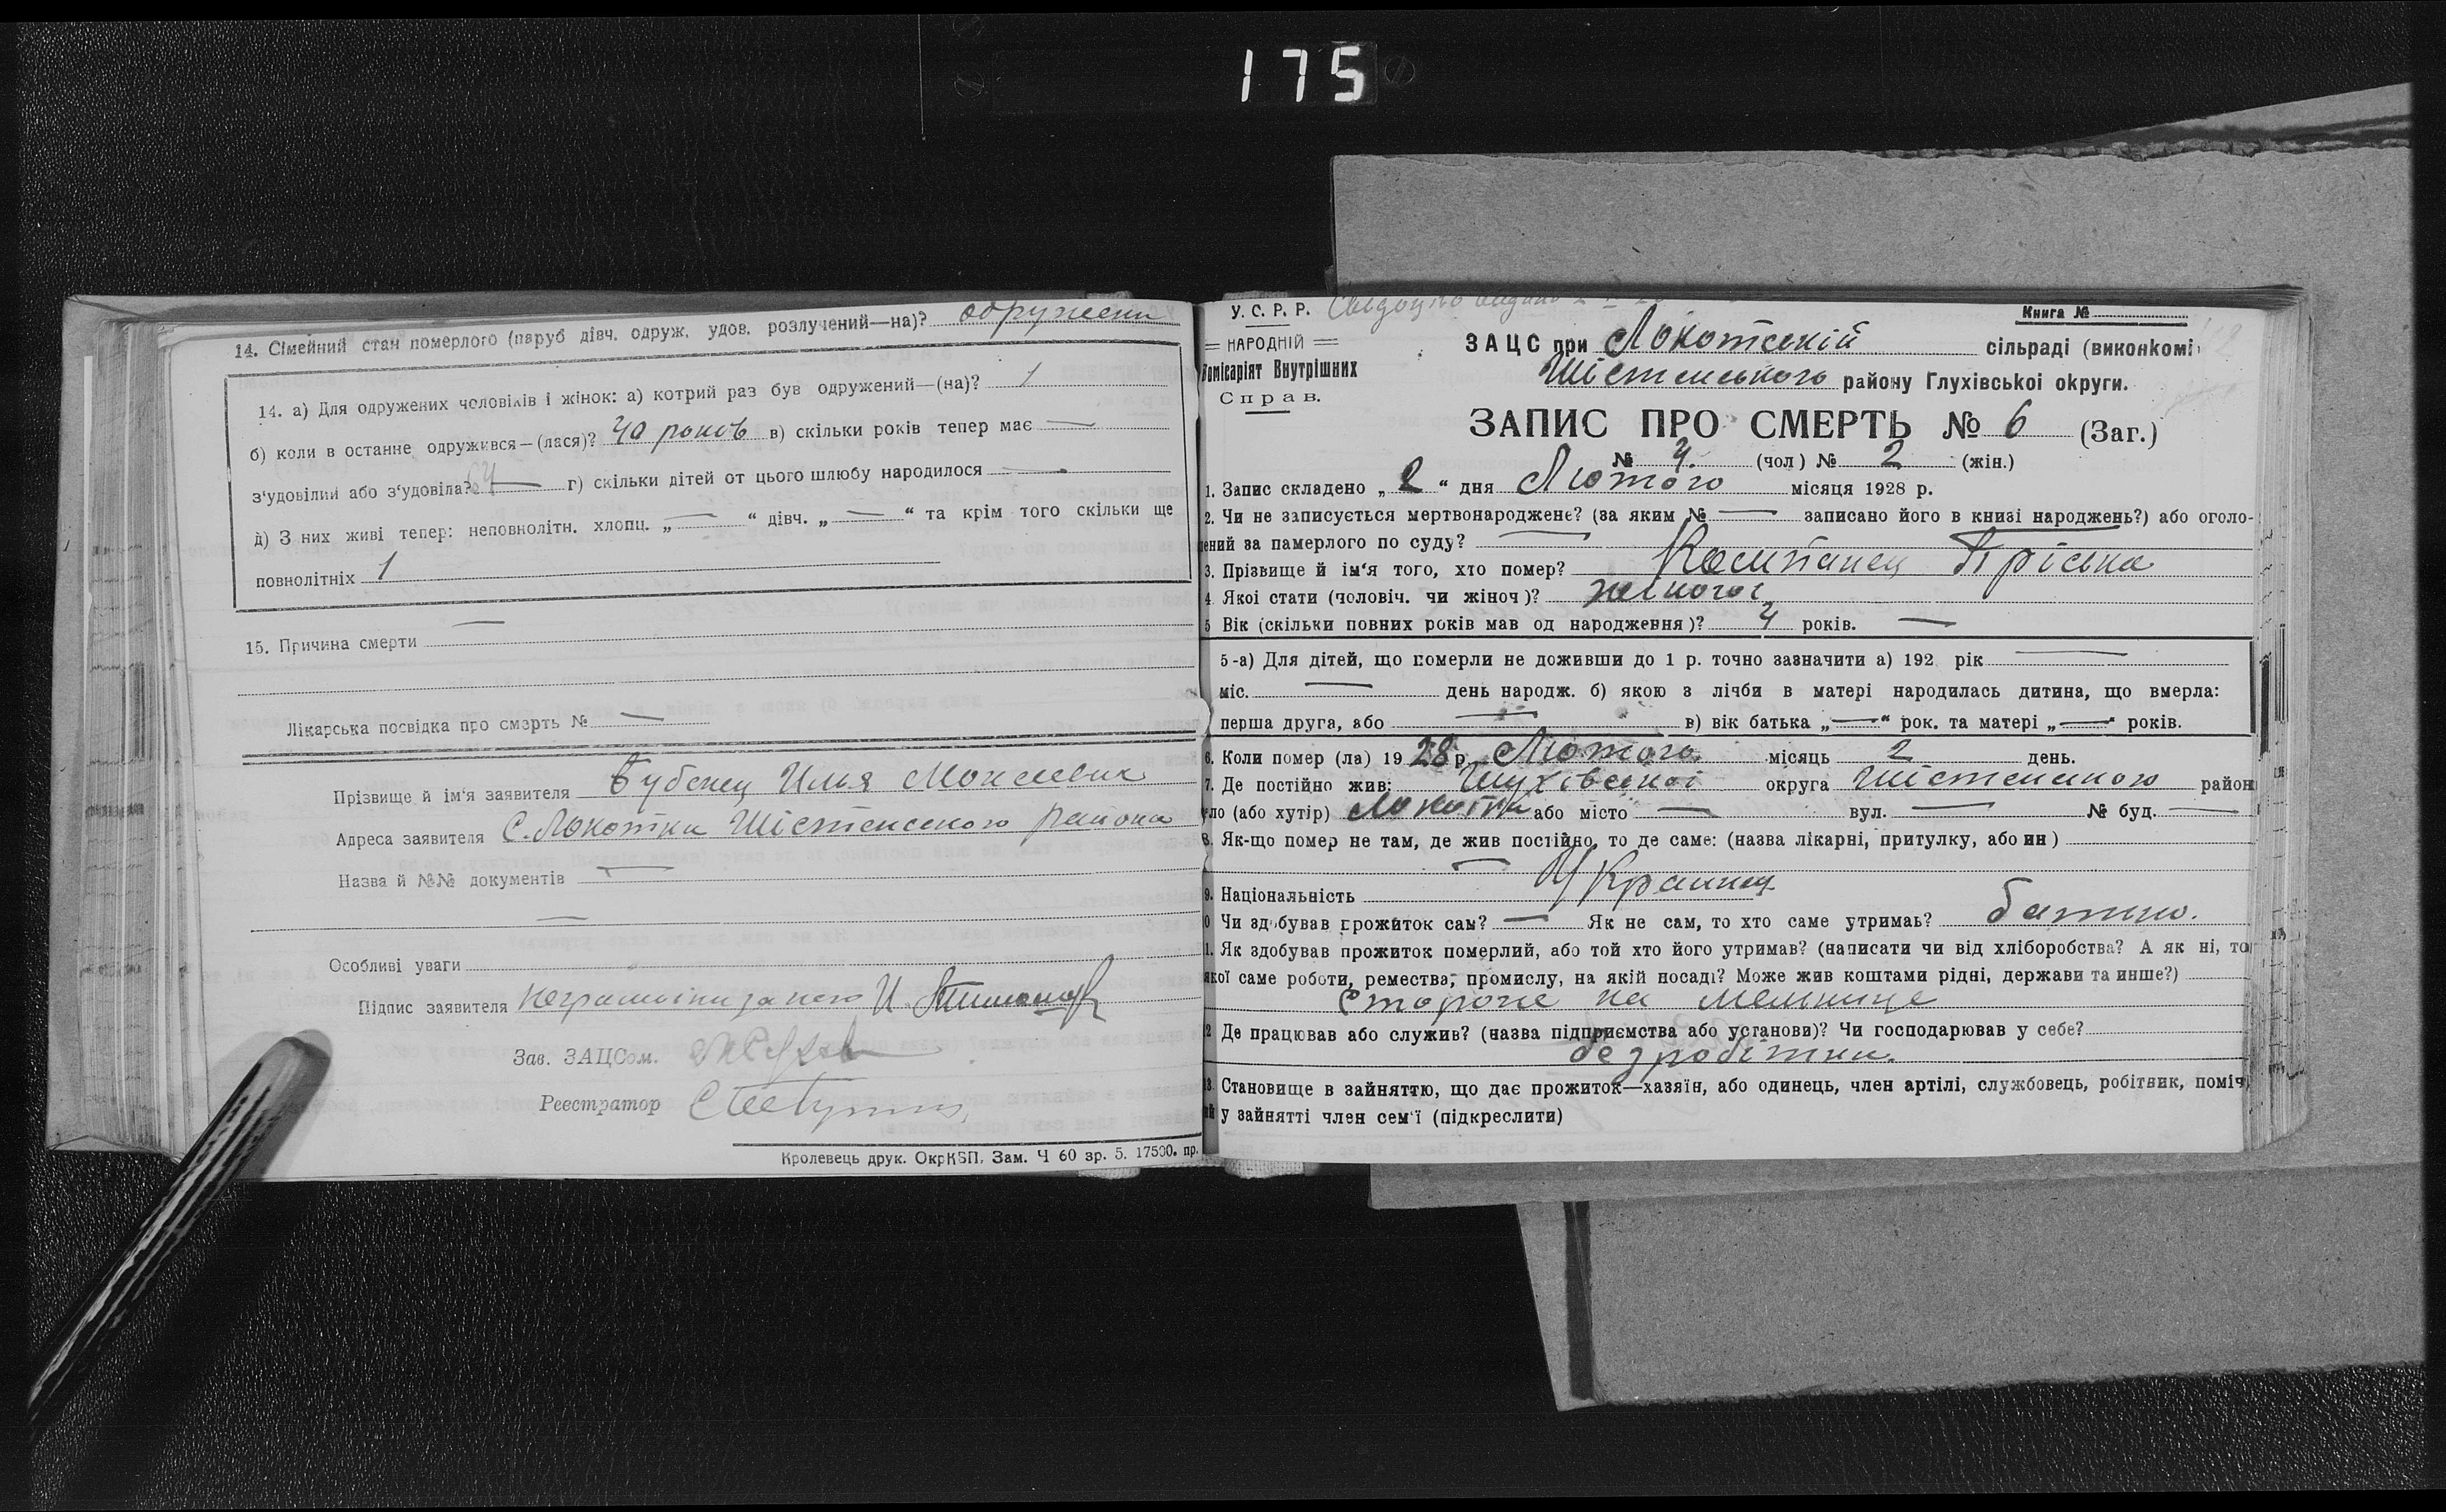 175
14. Сімейний стан померлого (паруб дівч. одруж. удов. розлучений—на)? одружени
14. а) Для одружених чоловіків і жінок: а) котрий раз був одружений—(на)? 1
б) коли в останне одружився—(лася)? 40 роков в) скільки років тепер має —
з'удовілий або з'удовіла? — г) скільки дітей от цього шлюбу народилося —
д) З них живі тепер: неповнолітн. хлопц. „ — “ дівч. „ — “ та крім того скільки ще
повнолітніх 1
15. Причина смерти —
Лікарська посвідка про смэрть № —
Прізвище й ім'я заявителя Бубенец Илья
Адреса заявителя С. Локотки Шістенсского района
Назва й №№ документів —
—
Особливі уваги
Підпис заявителя неграмотни за него И.
Зав. ЗАЦСом.
Реестратор
Кролевець друк. ОкрКВП. Зам. Ч 60 зр. 5. 17500. пр.
У. С. Р. Р.
Книга №
= НАРОДНІЙ =
Комісаріят Внутрішних
Справ.
ЗАЦС при Локотській сільраді (виконкомі
Шістенського району Глухівської округи.
ЗАПИС ПРО СМЕРТЬ № 6 (Заг.)
№ 4. (чол) № 2 (жін.)
1. Запис складено „ 2 “ дня Лютого місяця 1928 р.
2. Чи не записується мертвонароджене? (за яким № — записано його в книзі народжень?) або оголо-
шений за памерлого по суду? —
3. Прізвище й ім'я того, хто помер? Компанец Пріська
4 Якоі стати (чоловіч. чи жіноч)? жіночої
5 Вік (скільки повних років мав од народження)? 4 років. —
5-а) Для дітей, що померли не доживши до 1 р. точно зазначити а) 192 рік —
міс. — день народж. б) якою з лічби в матері народилась дитина, що вмерла:
перша друга, або — в) вік батька „—“ рок. та матері „—“ років.
6. Коли помер (ла) 1928 р. Лютого місяць 2 день.
7. Де постійно жив: Глухівської округа Шістенського район
село (або хутір) Локотки або місто — вул. — № буд. —
8. Як-що помер не там, де жив постійно, то де саме: (назва лікарні, притулку, або ин)
—
9. Національність Украинец
10 Чи здобував прожиток сам? — Як не сам, то хто саме утримаь? батько.
11. Як здобував прожиток померлий, або той хто його утримав? (написати чи від хліборобства? А як ні, то
якої саме роботи, ремества, промислу, на якій посаді? Може жив коштами рідні, держави та инше?)
Стороже на мельнице
12 Де працював або служив? (назва підприємства або установи)? Чи господарював у себе?
безробітни.
13. Становище в зайняттю, що дає прожиток—хазяїн, або одинець, член артілі, службовець, робітник, поміч
ний у зайнятті член сем'ї (підкреслити)